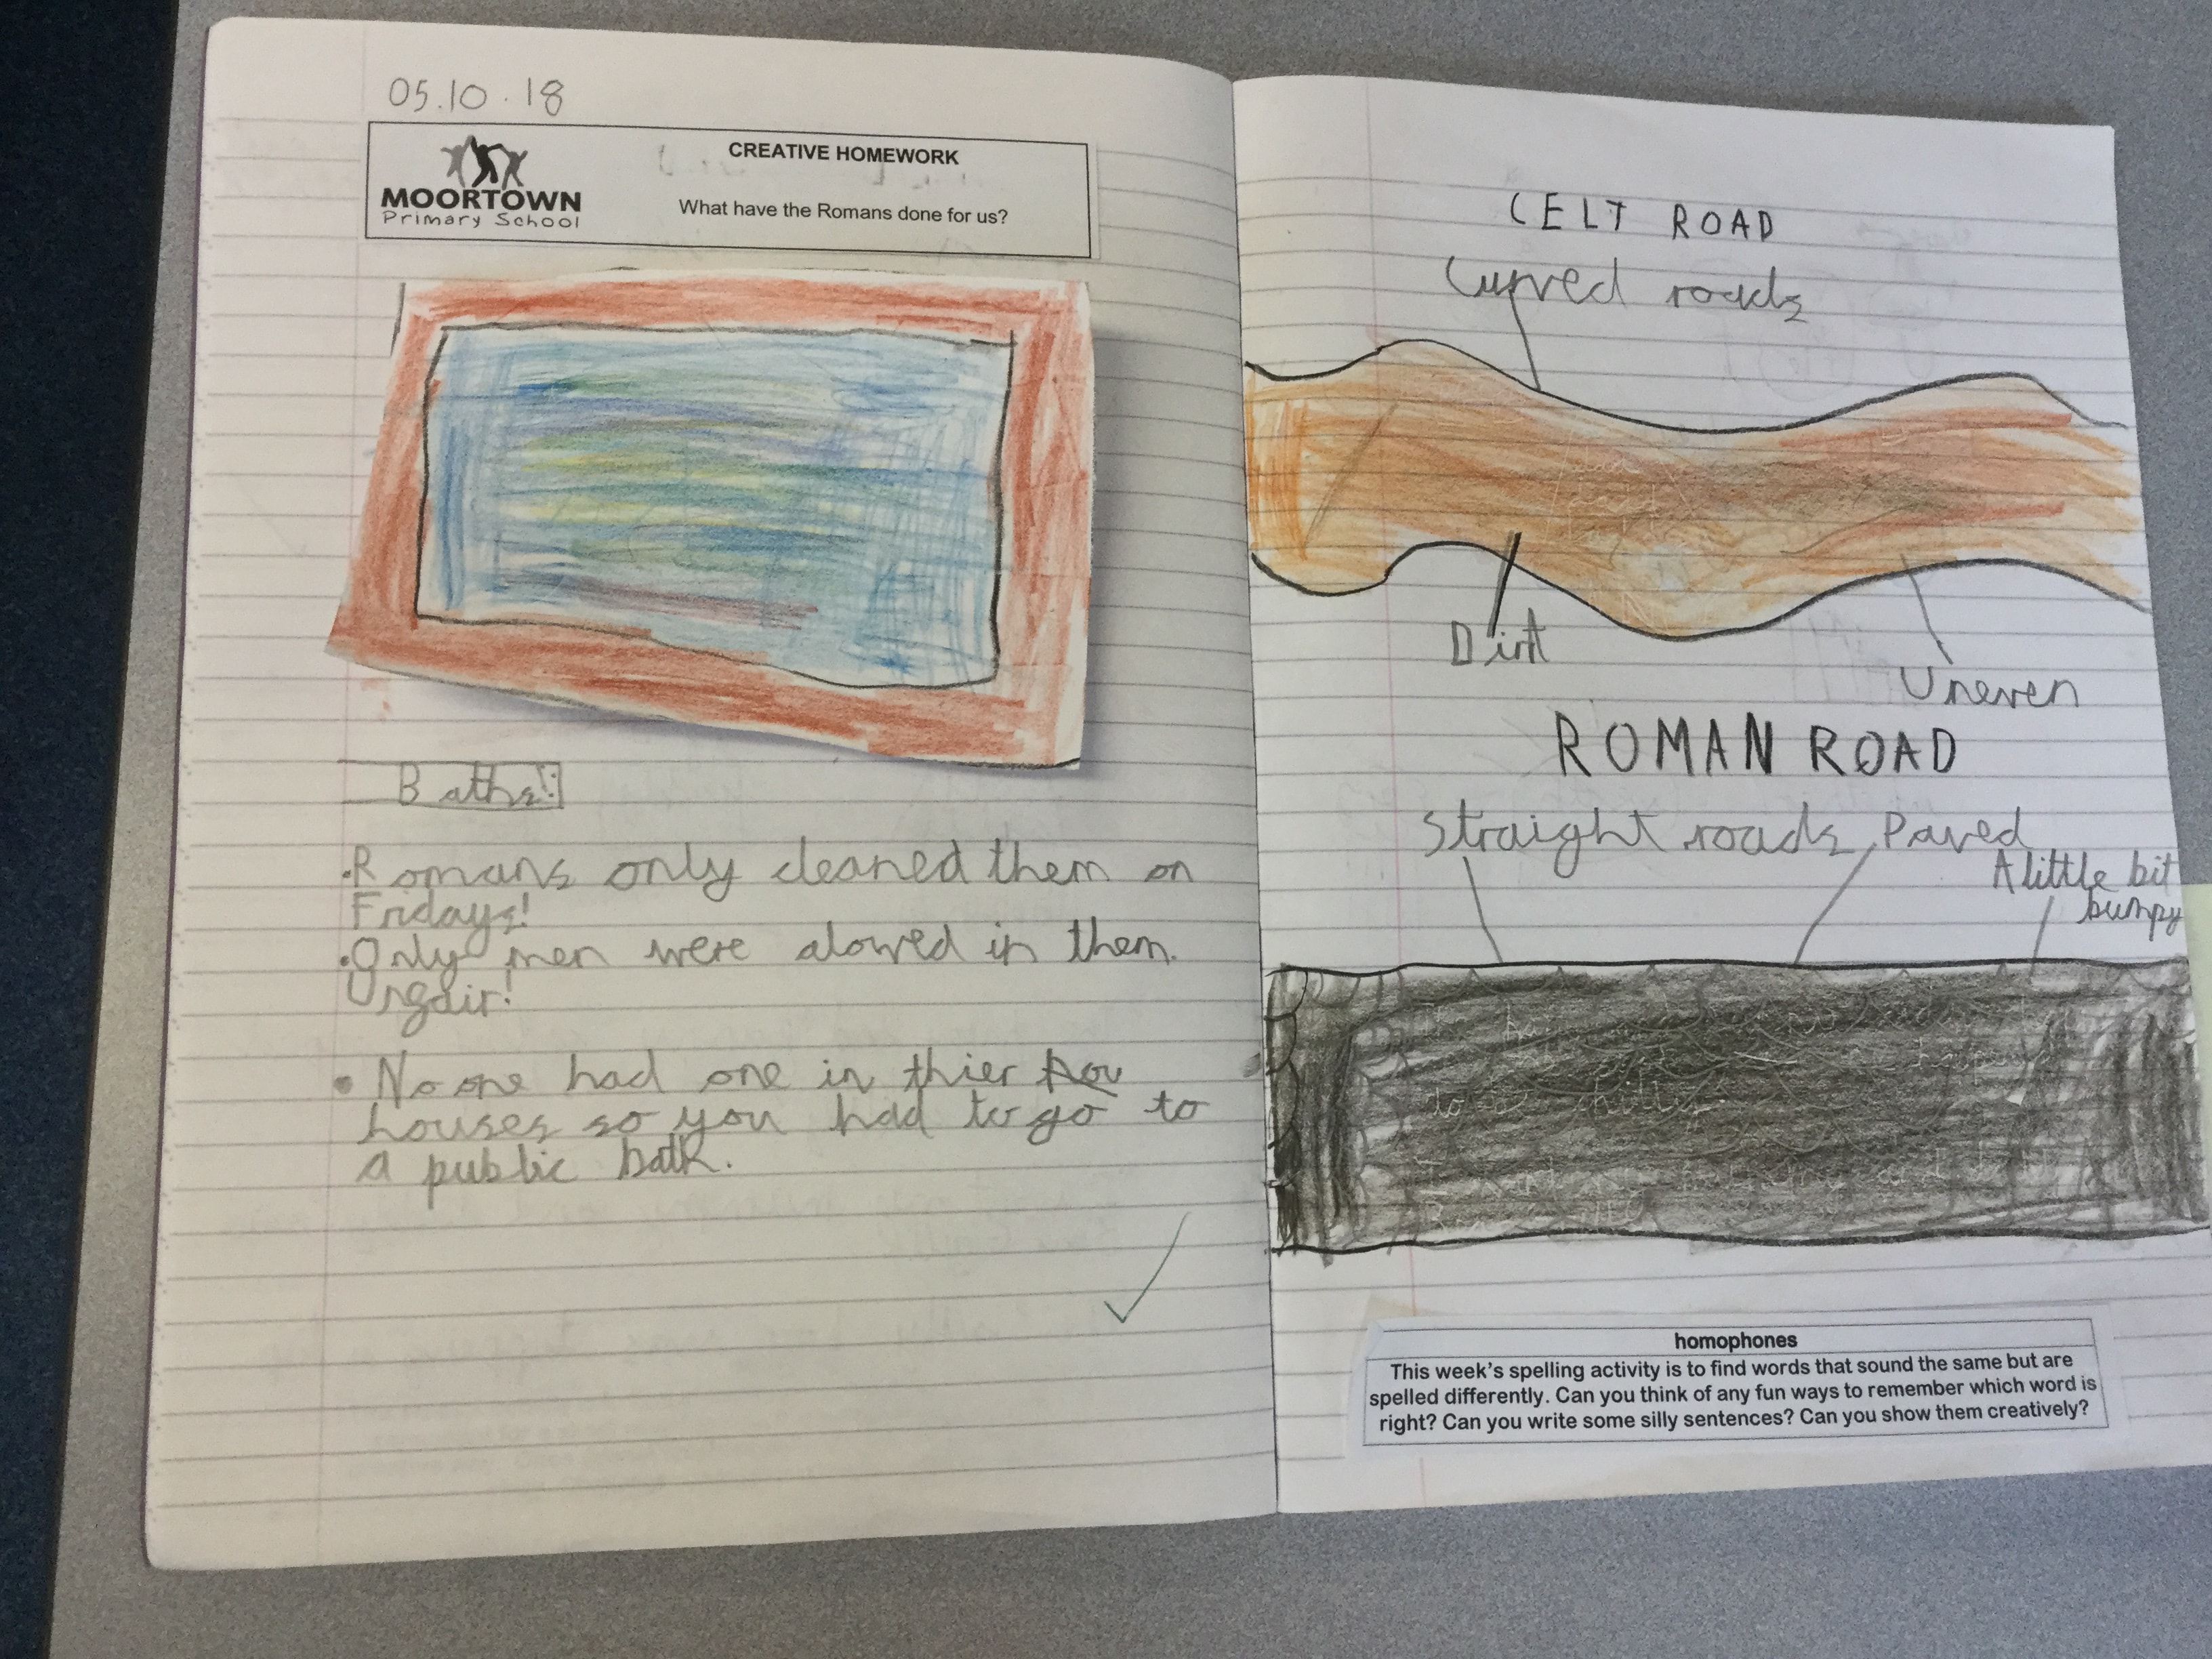 05.10.18
MOORTOWN
Primary School
CREATIVE HOMEWORK
What have the Romans done for us?
Baths!
• Romans only cleaned them on
Fridays!
• Only men were alowed in them.
Ungair!
• No one had one in thier hou
houses so you had to go to
a public bath.
CELT ROAD
Curved roads
Dirt
Uneven
ROMAN ROAD
Straight roads Paved
A little bit
bumpy
homophones
This week's spelling activity is to find words that sound the same but are
spelled differently. Can you think of any fun ways to remember which word is
right? Can you write some silly sentences? Can you show them creatively?